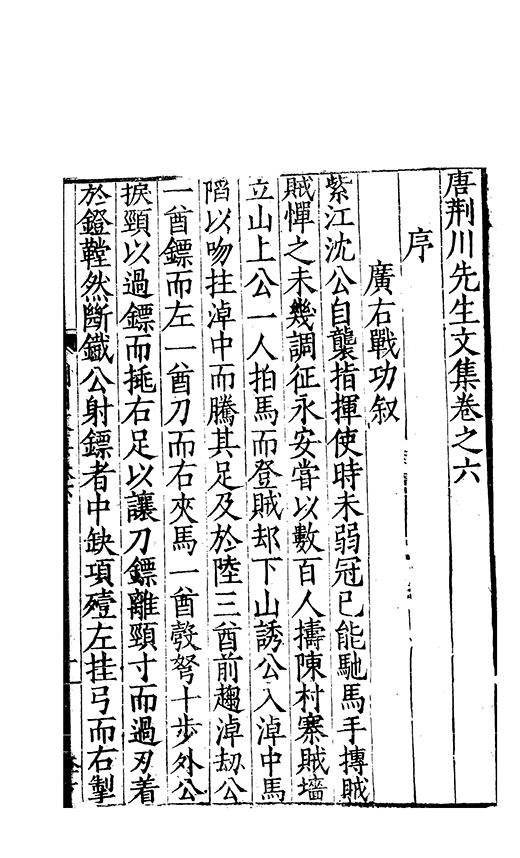 唐荆川先生文集卷之六
序
廣右戰功叙
紫江沈公自襲指揮使時未弱冠已能馳馬手搏賊
賊憚之未幾調征永安嘗以數百人擣陳村寨賊墻
立山上公一人拍馬而登賊却下山誘公入淖中馬
陷以吻拄淖中而騰其足及於陸三酋前趨淖劫公
一酋鏢而左一酋刀而右夾馬一酋彀弩十步外公
捩頸以過鏢而挑右足以讓刀鏢離頸寸而過刃着
於鐙鞺然斷鐵公射鏢者中缺項殪左挂弓而右掣